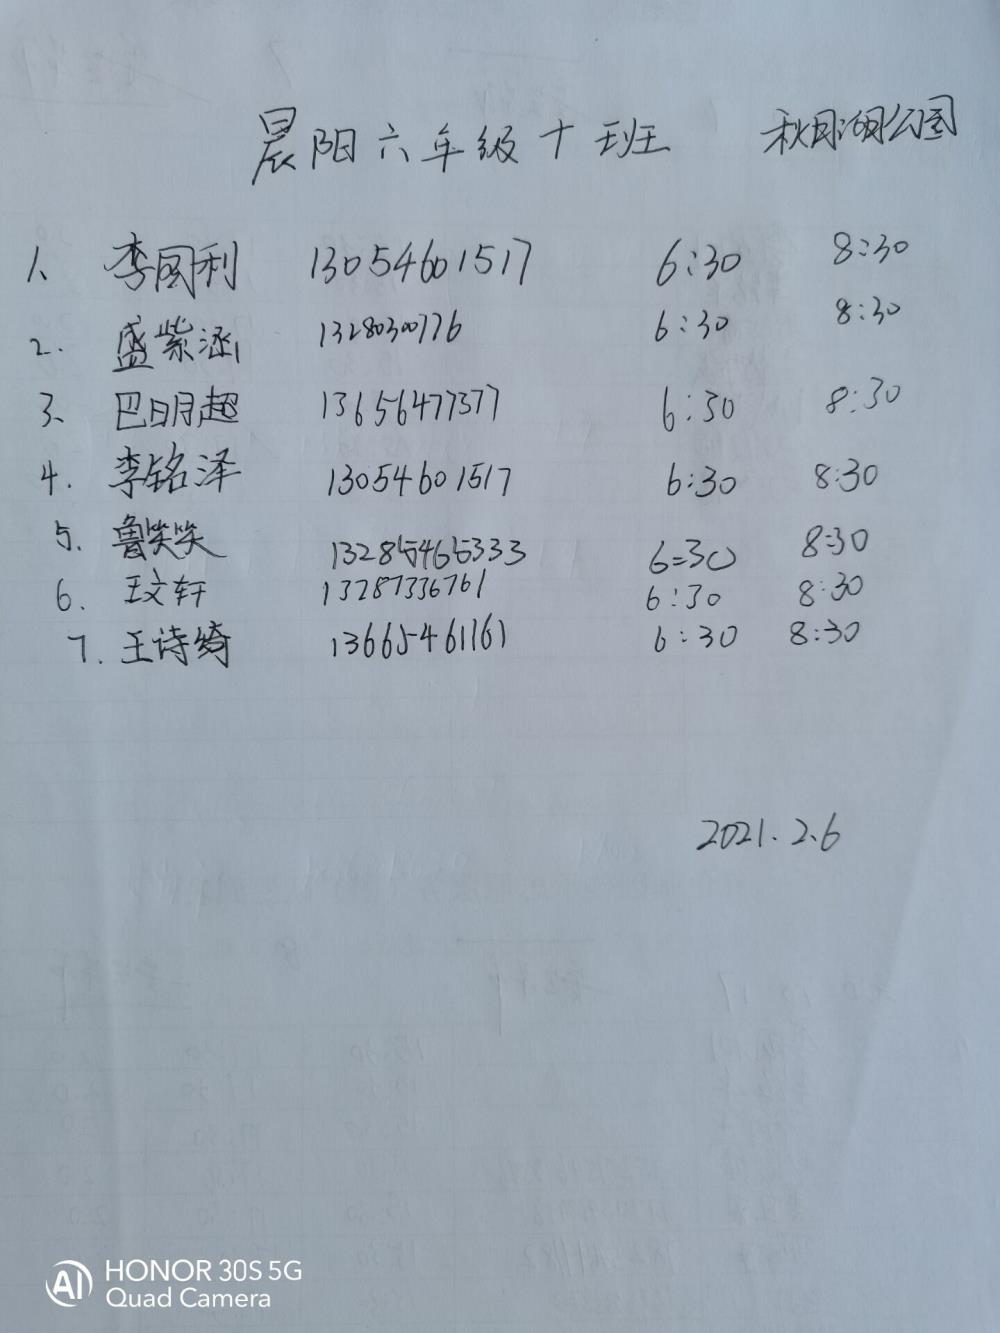 晨阳六年级十班 秋月湖公园
1、 李国利 13054601517 6:30 8:30
2. 盛紫涵 13280300776 6:30 8:30
3、 巴明超 13656477377 6:30 8:30
4. 李铭泽 13054601517 6:30 8:30
5. 鲁笑笑 13285465333 6:30 8:30
6. 王文轩 13287336761 6:30 8:30
7. 王诗绮 13665461161 6:30 8:30
2021.2.6
AI HONOR 30S 5G
Quad Camera